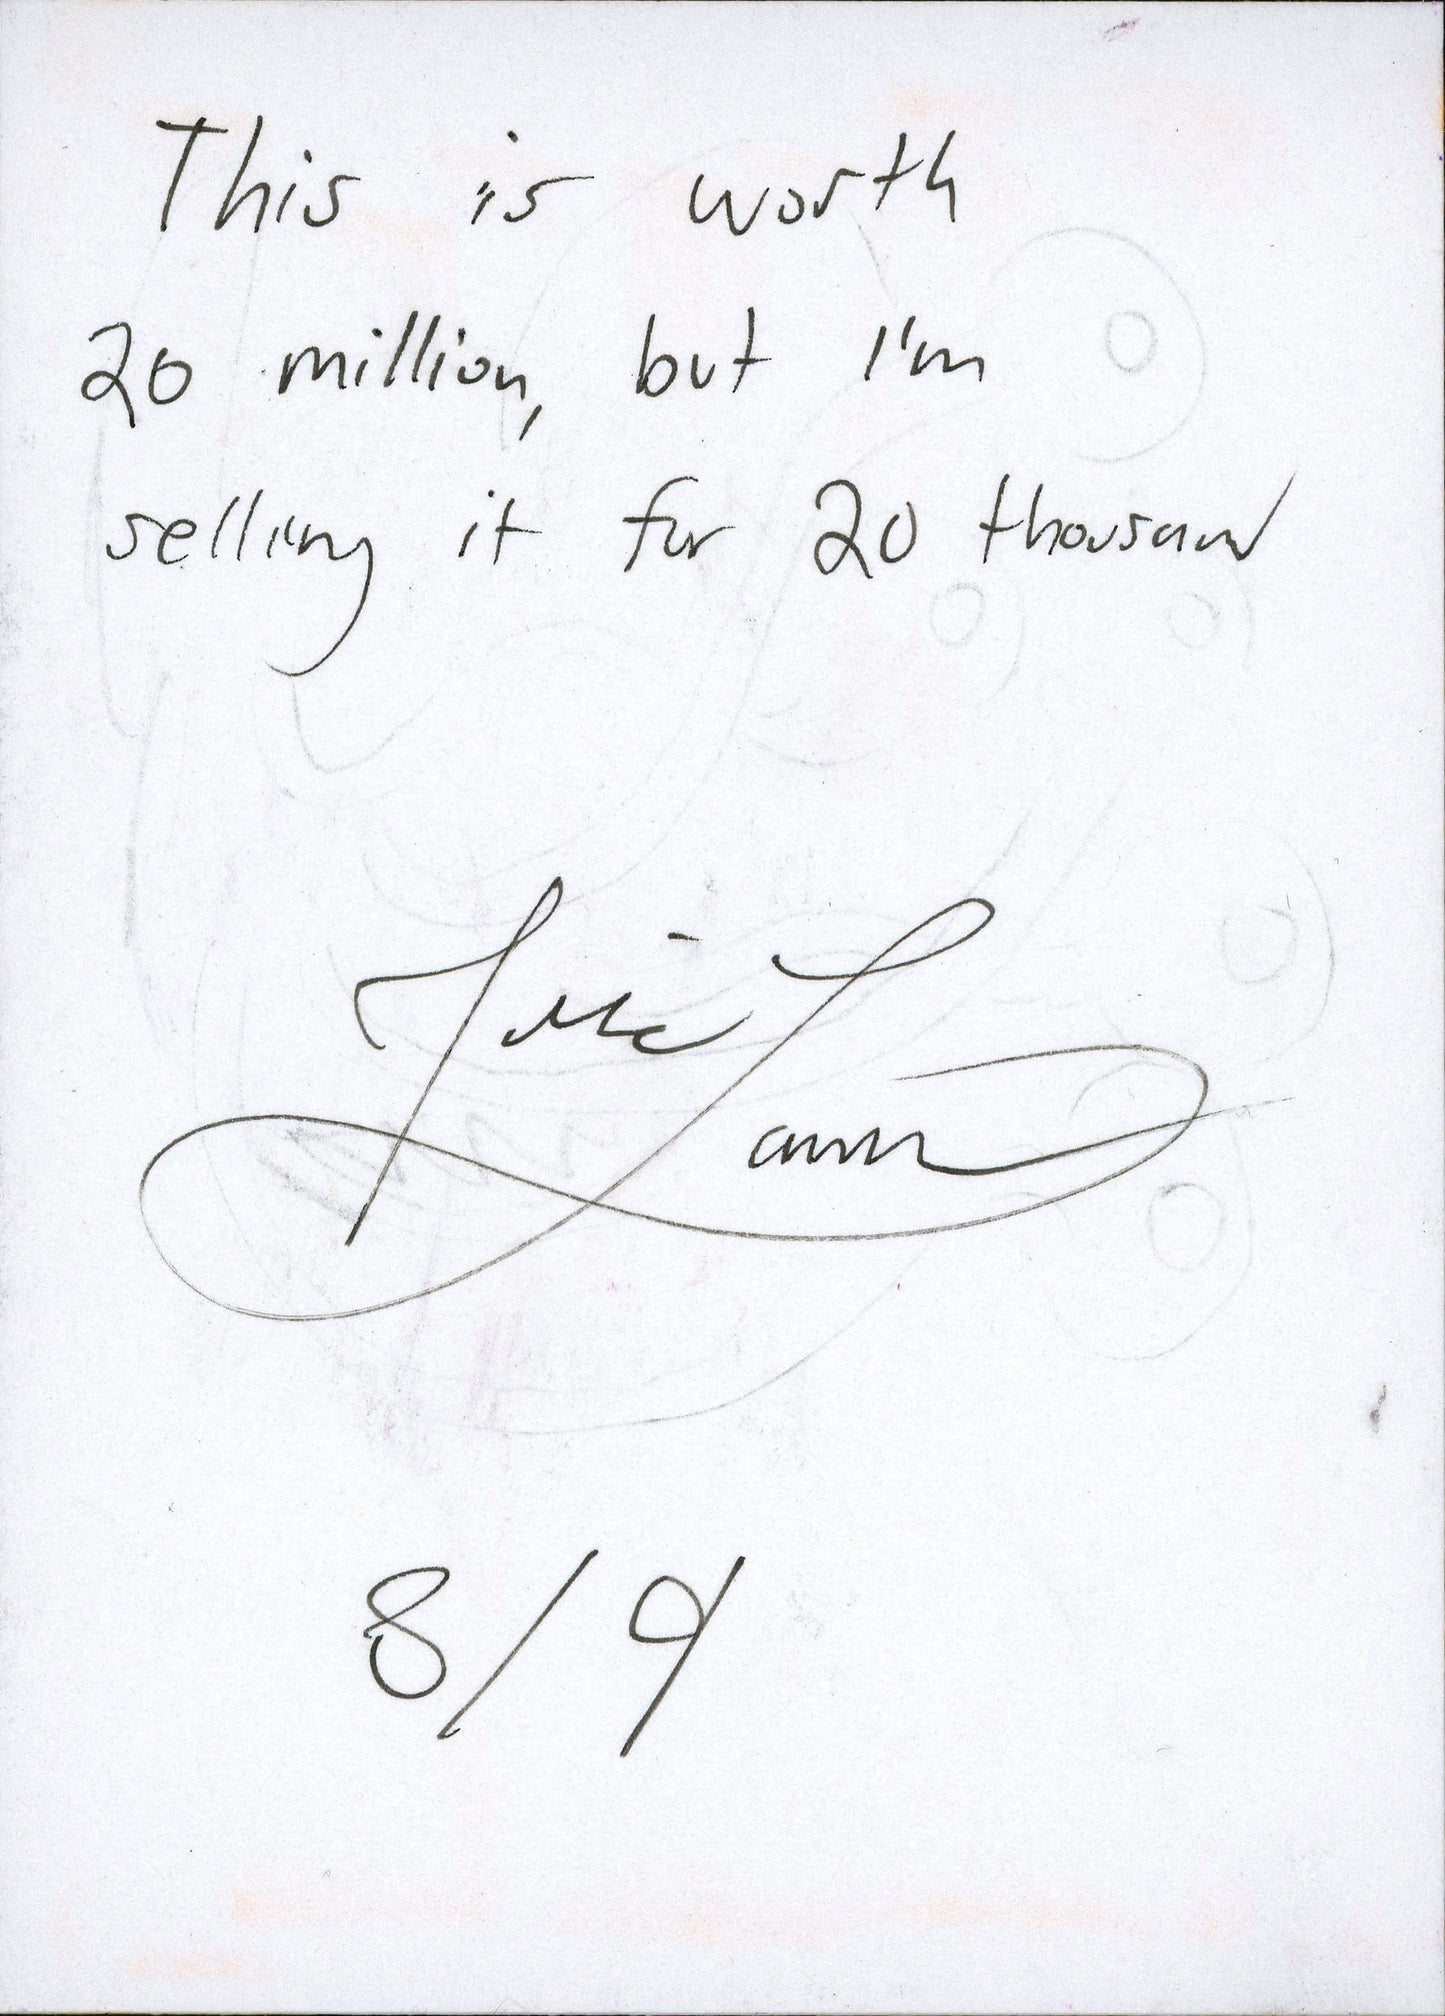 This is worth
20 million, but I'm
selling it for 20 thousand
8/9